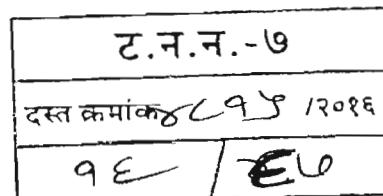 ट.न.न.-७
दस्त क्रमांक ४८१५ /२०१६
१६ / ६७